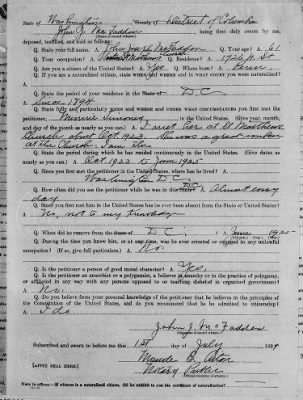 State of Washington County of District of Columbia
John J. McFadden being first duly sworn by me,
deposed, testified, and said as follows:
Q. State your full name? A. John Joseph McFadden Q. Your age? A. 61
Q. Your occupation? A. Q. Residence? A. 1726 P. St
Q. Are you a citizen of the United States? A. Yes Q. When born? A.
Q. If you are a naturalized citizen, state when and in what court you were naturalized?
A.
Q. State the period of your residence in the State of D.C.
A. Since 1894
Q. State fully and particularly where and under what circumstances you first met the
petitioner, Minnie (Give month, year,
and day of the month as nearly as you can.) A. I met her at St Matthews
Church about Oct. 1922. She was a
at the Church. I am also
Q. State the period during which he has resided continuously in the State. (Give dates as
nearly as you can.) A. Oct. 1922 to June 1925
Q. Since you first met the petitioner in the United States, where has he lived? A.
Washington D.C.
Q. How often did you see the petitioner while he was in the State? A. Almost every
day
Q. Since you first met him in the United States has he ever been absent from the United States?
A. No, not to my knowledge
Q. When did he remove from the State of D.C. A. June 1925
Q. During the time you knew him, or at any time, was he ever arrested or engaged in any unlawful
occupation? (If so, give full particulars.) A. No.
Q. Is the petitioner a person of good moral character? A. Yes.
Q. Is the petitioner an anarchist or a polygamist, a believer in anarchy or in the practice of polygamy,
or affiliated in any way with any persons opposed to or teaching disbelief in organized government?
A. No.
Q. Do you believe from your personal knowledge of the petitioner that he believes in the principles of
the Constitution of the United States, and do you recommend that he be admitted to citizenship?
A. I do
John J. McFadden
Subscribed and sworn to before me this 1st day of July, 1929
Maude B.
Notary Public
[AFFIX SEAL HERE.]
NOTE.—If witness is a naturalized citizen, he should exhibit to you his certificate of naturalization.